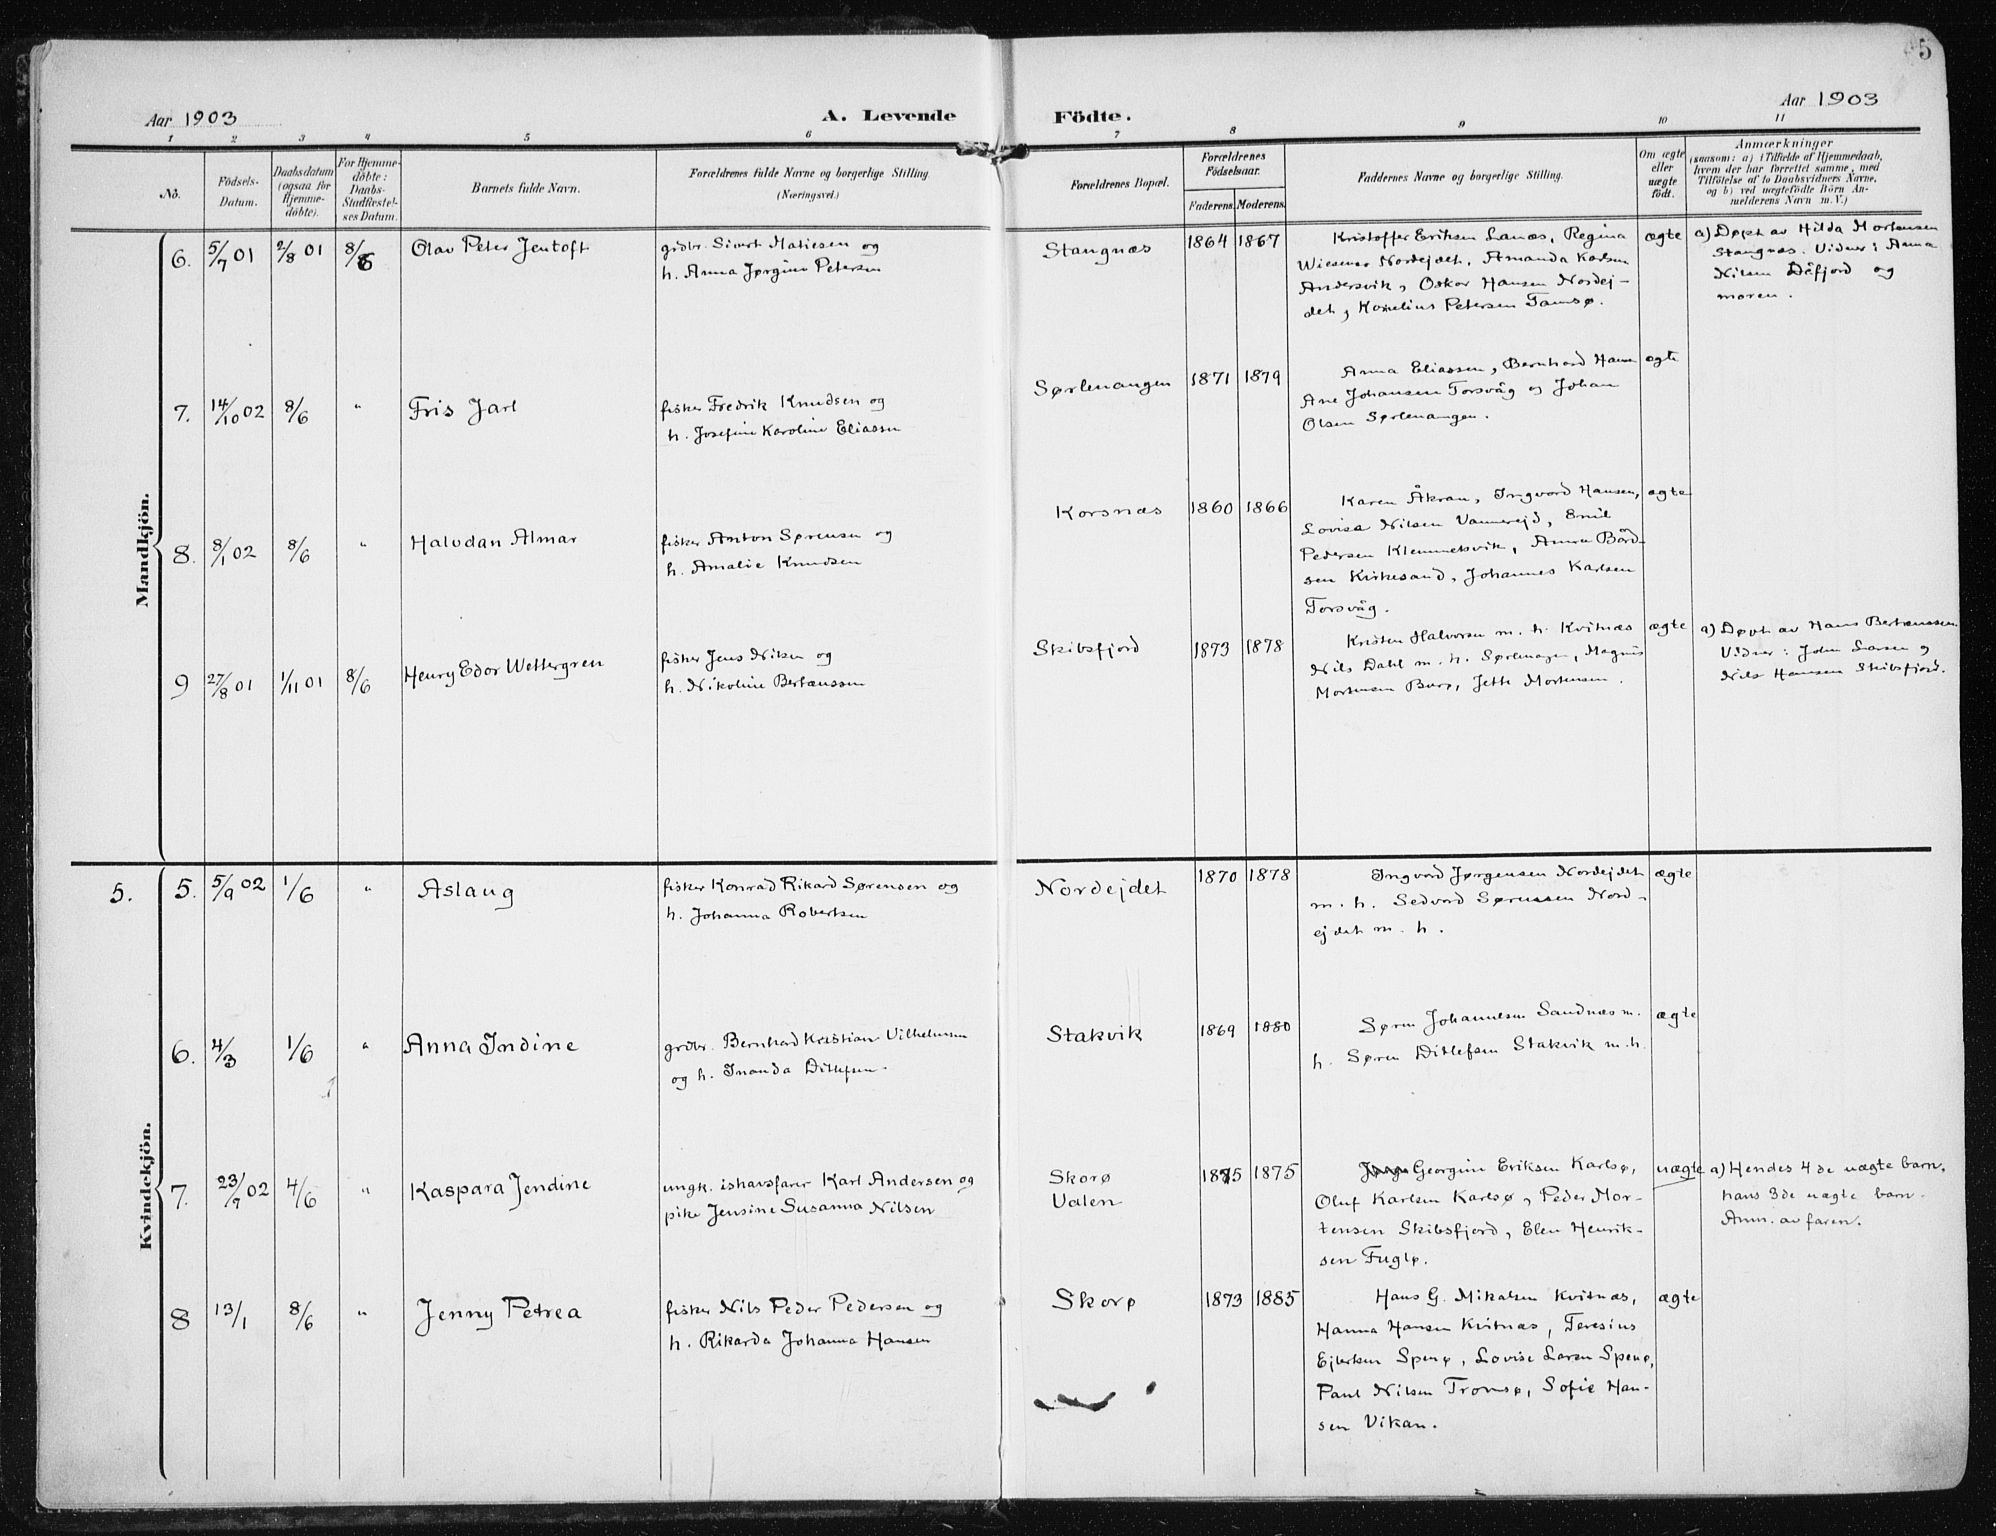 5
Aar 1903
A. Levende
Födte.
Aar 1903
1 2 3 4 5 6 7 8 9 10 11
No.
Födsels-
Datum.
Daabsdatum
(ogsaa for
Hjemme-
döbte).
For Hjemme-
döbte:
Daabs-
Stadfæstel-
ses Datum.
Barnets fulde Navn.
Forældrenes fulde Navne og borgerlige Stilling
(Næringsvei.)
Forældrenes Bopæl.
Forældrenes
Födselsaar.
Faderens. Moderens.
Faddernes Navne og borgerlige Stilling.
Om ægte
eller
uægte
födt.
Anmærkninger
(saasom: a) i Tilfælde af Hjemmedaab,
hvem der har forrettet samme, med
Tilföielse af to Daabsvidners Navne,
og b) ved uægtefödte Börn An-
melderens Navn m.V.)
Mandkjön.
6. 5/7 01 2/8 01 8/6 Olav Peter Jentoft
grdbr. Sivert Matiesen og
h. Anna Jørgine Petersen
Stangnæs 1864 1867
Kristoffer Eriksen Lanæs, Regina
Wiesener Nordejdet, Amanda Karlsen
Andersvik, Oskar Hansen Nordej-
det, Kornelius Petersen Tamsø.
ægte
a) Døpt av Hilda Mortensen
Stangnæs. Vidner: Anna
Nilsen Dåfjord og
moren.
7. 14/10 02 8/6 " Fris Jarl
fisker Fredrik Knudsen og
h. Josefine Karoline Eliassen
Sørlenangen 1871 1879
Anna Eliassen, Bernhard Hansen
Ane Johansen Torsvåg og Johan
Olsen Sørlenangen.
ægte
8. 8/1 02 8/6 " Halvdan Almar
fisker Anton Sørensen og
h. Amalie Knudsen
Korsnæs 1860 1866
Karen Åkran, Ingvard Hansen,
Lovisa Nilsen Vannerejd, Emil
Pedersen Klemmetsvik, Anna Bård-
sen Kirkesand, Johannes Karlsen
Torsvåg.
ægte
9 27/8 01 1/11 01 8/6 Henry Edor Wettergren
fisker Jens Nilsen og
h. Nikoline Bertænssen
Skibsfjord 1873 1878
Kristen Halvorsen m. h. Kvitnæs
Nils Dahl m. h. Sørlenangen, Magnus
Mortensen Burø, Jette Mortensen.
ægte
a) Døpt av Hans Bertænssen
Vidner: John Larsen og
Nils Hansen Skibsfjord.
Kvindekjön.
5. 5. 5/9 02 1/6 " Aslaug
fisker Konrad Rikard Sørensen og
h. Johanna Robertsen
Nordejdet 1870 1878
Ingvard Jørgensen Nordejdet
m. h. Sedvard Sørensen Nord-
ejdet m. h.
ægte
6. 4/3 1/6 " Anna Indine
grdbr. Bernhard Kristian Vilhelmsen
og h. Inanda Ditlefsen.
Stakvik 1869 1880
Søren Johannesen Sandnæs m.
h. Søren Ditlefsen Stakvik m.h.
ægte
7. 23/7 02 4/6 " Kaspara Jendine
ungk. ishavsfarer Karl Andersen og
pike Jensine Susanna Nilsen
Skorø
Valen
1875 1875
Georgine Eriksen Karlsø,
Oluf Karlsen Karlsø, Peder Mor-
tensen Skibsfjord, Elen Henrik-
sen Fuglø.
uægte
a) Hendes 4de uægte barn.
hans 3de uægte barn.
Anm. av faren.
8 13/1 8/6 " Jenny Petrea
fisker Nils Peder Pedersen og
h. Rikarda Johanna Hansen
Skorø 1873 1885
Hans G. Mikalsen Kvitnæs,
Hanna Hansen Kvitnæs, Teresius
Ejlertsen Spenø, Lovise Larsen Spenø,
Paul Nilsen Tromsø, Sofie Han-
sen Vikan.
ægte